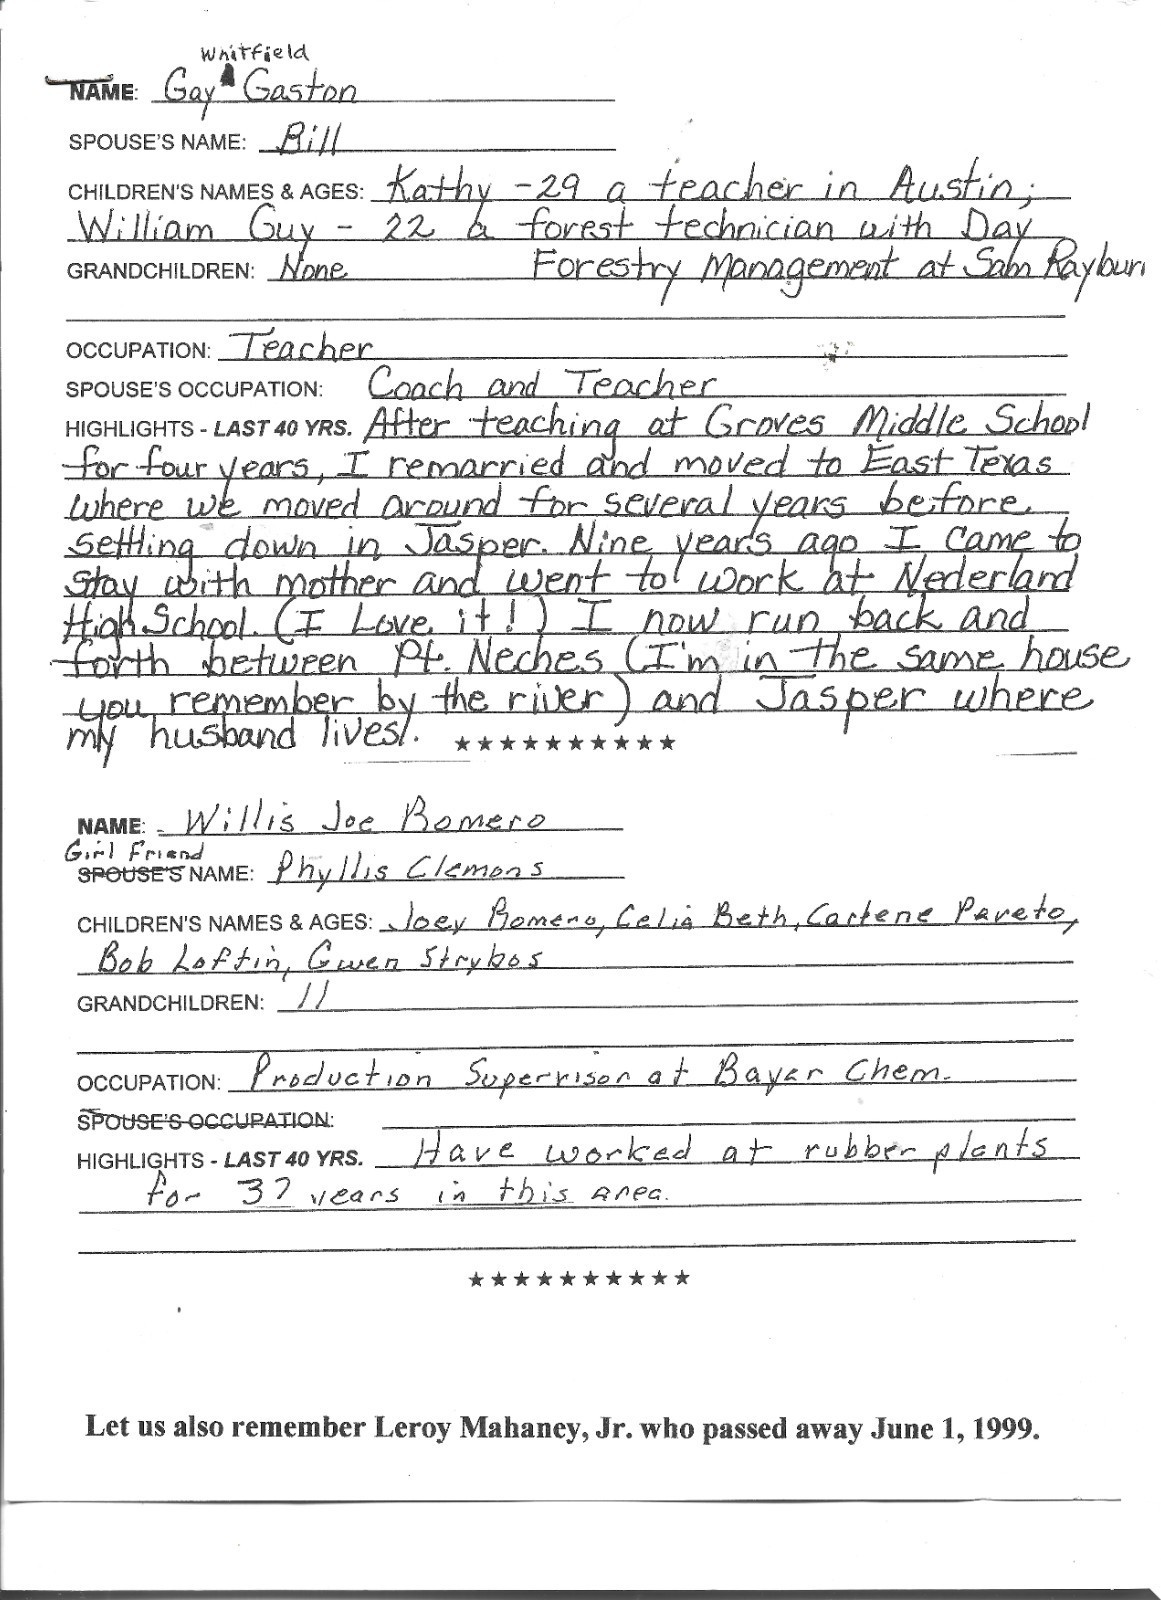 Whitfield
NAME: Gay Gaston
SPOUSE'S NAME: Bill
CHILDREN'S NAMES & AGES: Kathy - 29 a teacher in Austin;
William Guy - 22 a forest technician with Day
GRANDCHILDREN: None Forestry Management at Sam Rayburn
OCCUPATION: Teacher
SPOUSE'S OCCUPATION: Coach and Teacher
HIGHLIGHTS - LAST 40 YRS. After teaching at Groves Middle School
for four years, I remarried and moved to East Texas
where we moved around for several years before
settling down in Jasper. Nine years ago I came to
stay with mother and went to work at Nederland
High School. (I Love it!) I now run back and
forth between Pt. Neches (I'm in the same house
you remember by the river) and Jasper where
my husband lives. ★★★★★★★★★★
NAME: Willis Joe Romero
Girl Friend
SPOUSE'S NAME: Phyllis Clemons
CHILDREN'S NAMES & AGES: Joey Romero, Celia Beth, Carlene Pareto,
Bob Loftin, Gwen Strybos
GRANDCHILDREN: 11
OCCUPATION: Production Supervisor at Bayer Chem.
SPOUSE'S OCCUPATION:
HIGHLIGHTS - LAST 40 YRS. Have worked at rubber plants
for 37 years in this area.
★★★★★★★★★★
Let us also remember Leroy Mahaney, Jr. who passed away June 1, 1999.